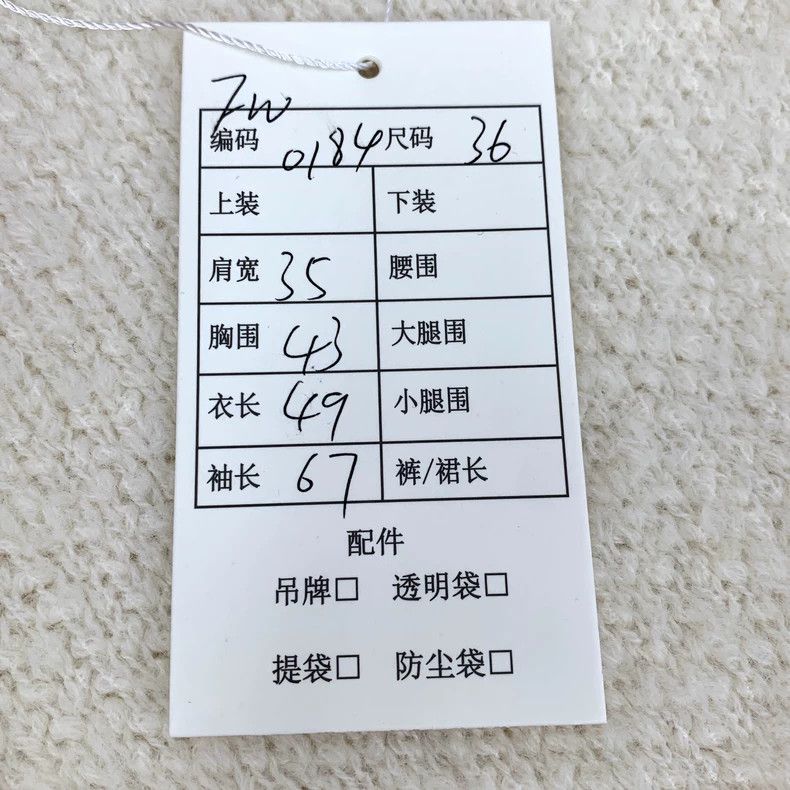 FW
编码 0184 尺码 36
上装 下装
肩宽 35 腰围
胸围 43 大腿围
衣长 49 小腿围
袖长 67 裤/裙长
配件
吊牌□ 透明袋□
提袋□ 防尘袋□